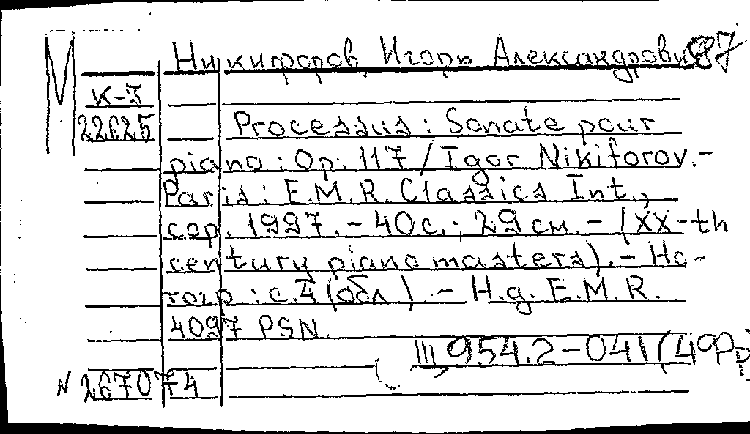 М
Никифоров, Игорь Александрович 87
К-5
22625
Processus: Sonate pour
piano: Op. 117 / Igor Nikiforov.-
Paris: E.M.R. Classics Int.,
cop. 1997. - 40 с.; 29 см. - (XX-th
century piano masters). - На-
тогр: с. 4 (обл.). - Н.д. E.M.R.
4097 PSN.
Ш 954.2-041(4Фр)
N 267074